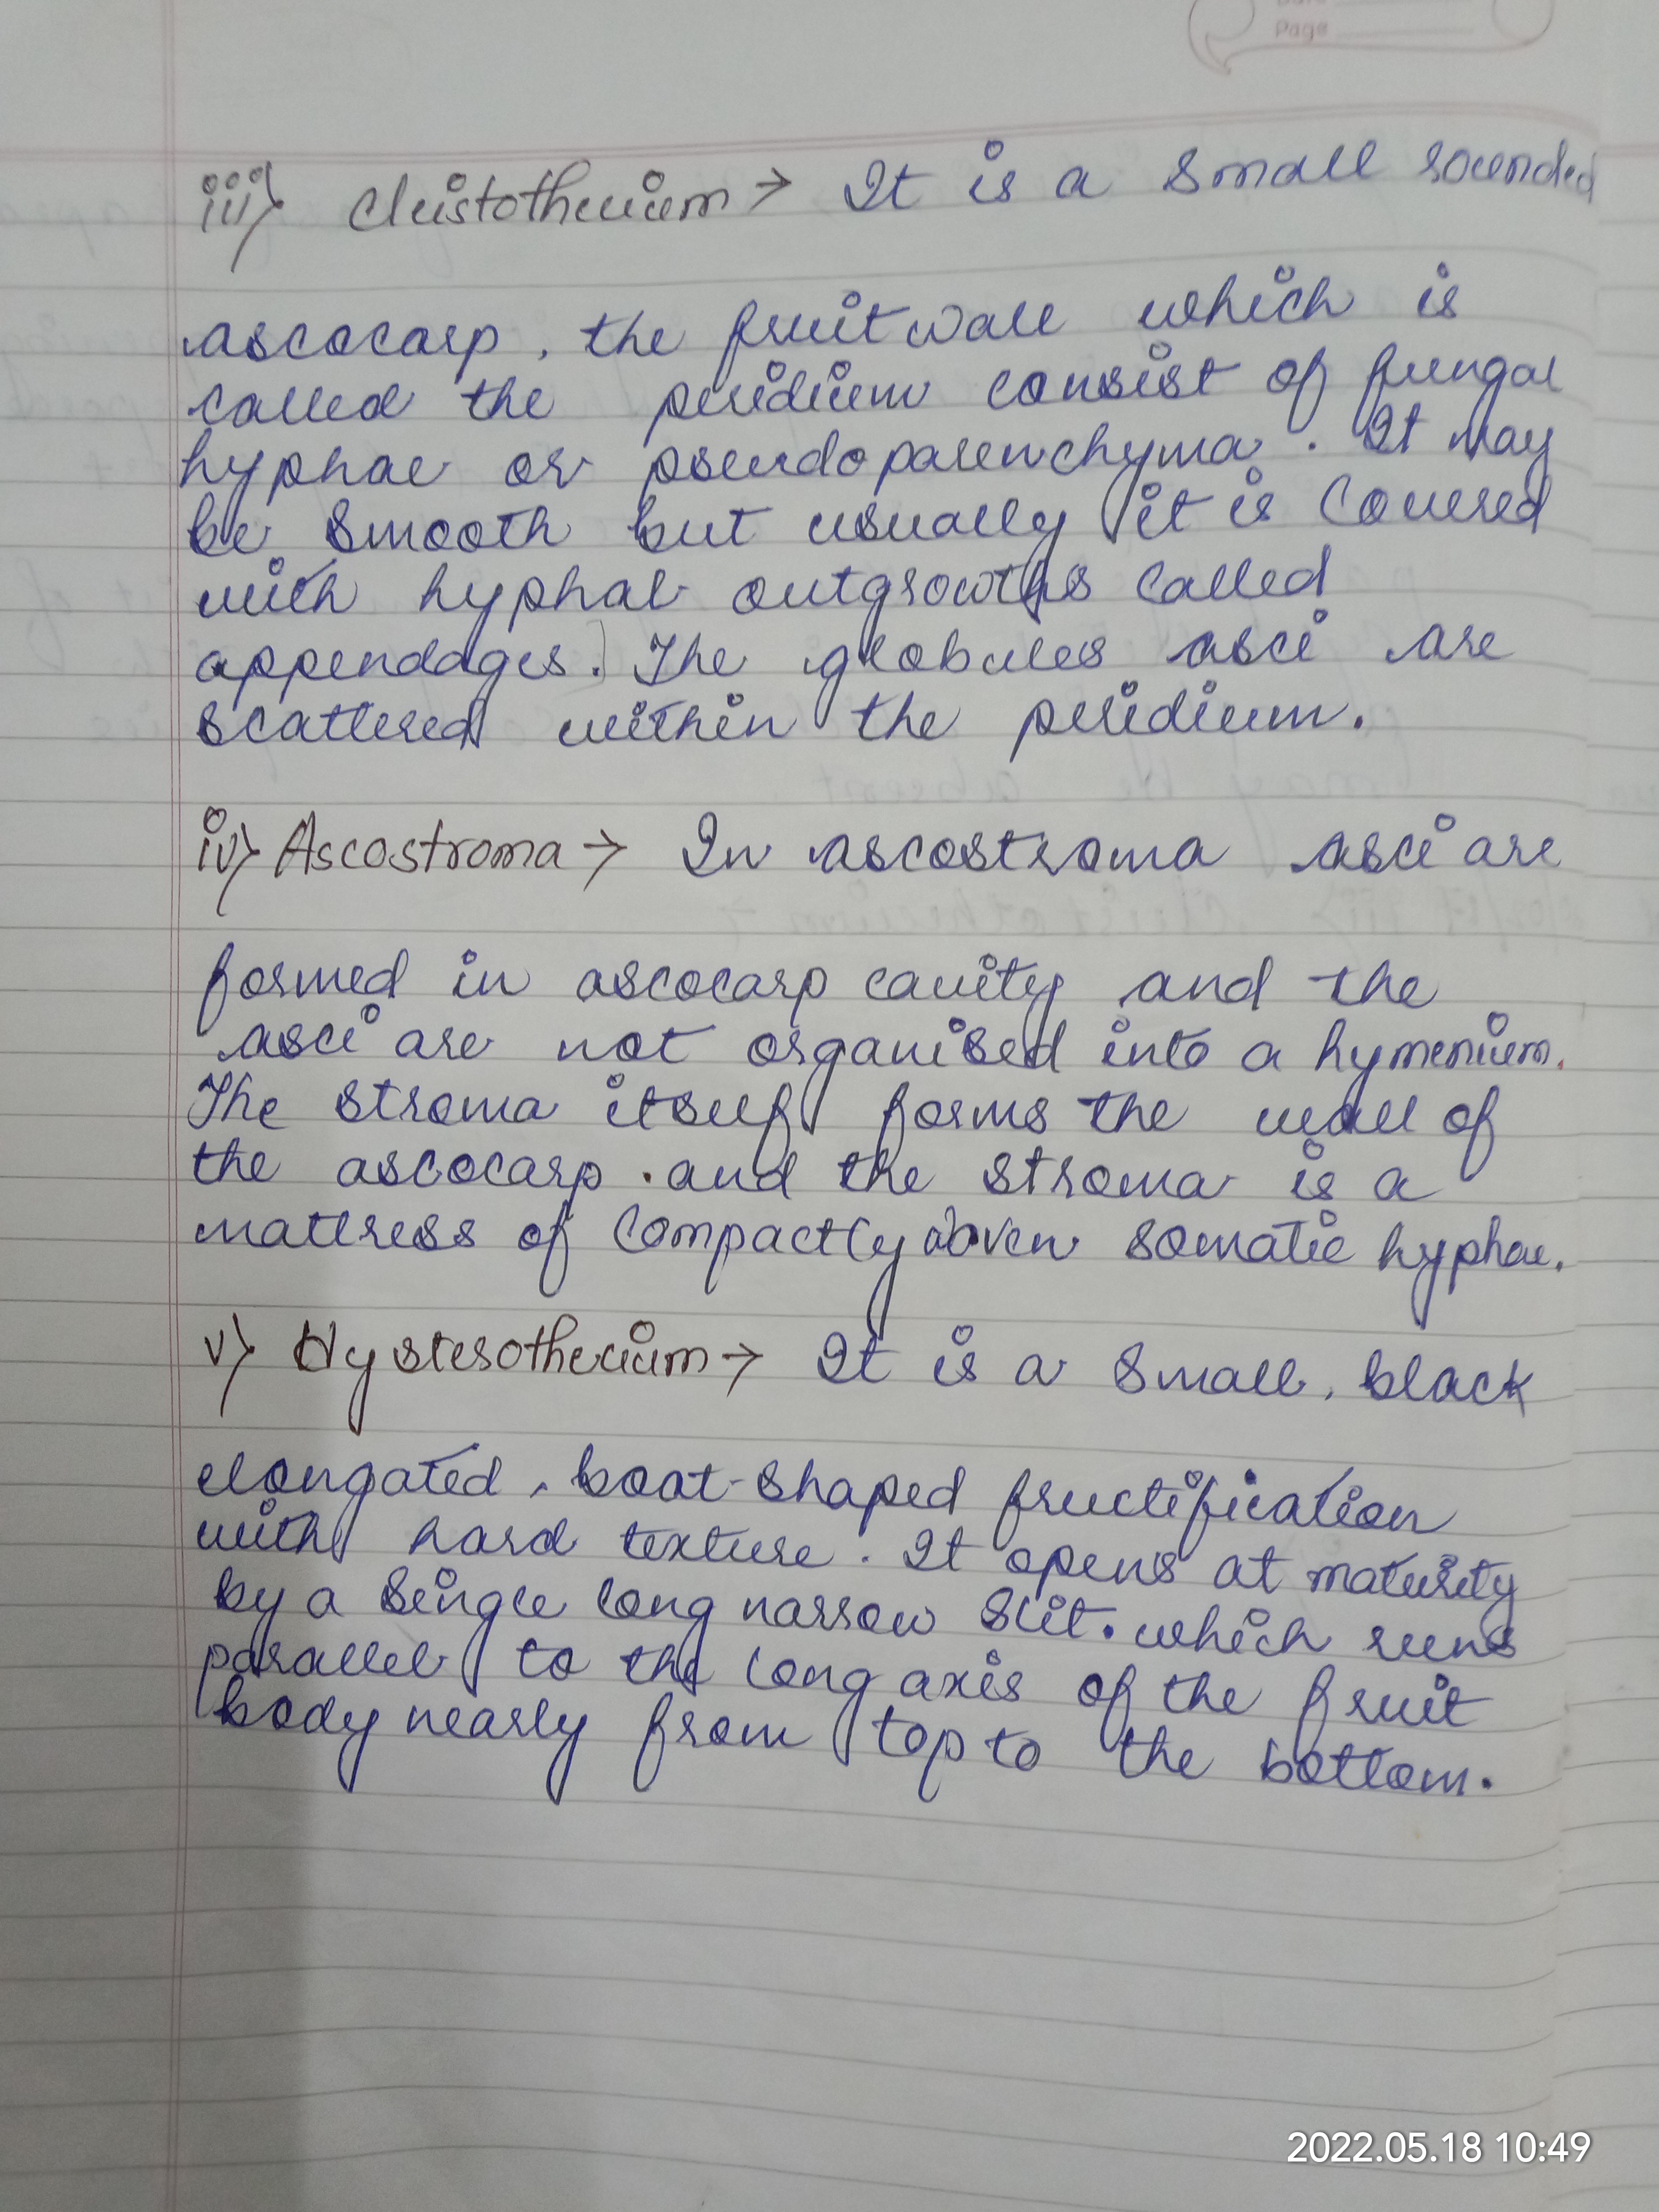 Page
iii) Cleistothecium → It is a small rounded
ascocarp, the fruit wall which is
called the peridium consist of fungal
hyphae or pseudoparenchyma. It may
be smooth but usually it is covered
with hyphal outgrowths called
appendages. The globules asci are
scattered within the peridium.
iv) Ascostroma → In ascostroma asci are
formed in ascocarp cavity and the
asci are not organised into a hymenium.
The stroma itself forms the wall of
the ascocarp. and the stroma is a
mattress of compactly woven somatic hyphae.
v) Hysterothecium → It is a small, black
elongated, boat-shaped fructification
with hard texture. It opens at maturity
by a single long narrow slit. which runs
parallel to the long axis of the fruit
body nearly from top to the bottom.
2022.05.18 10:49